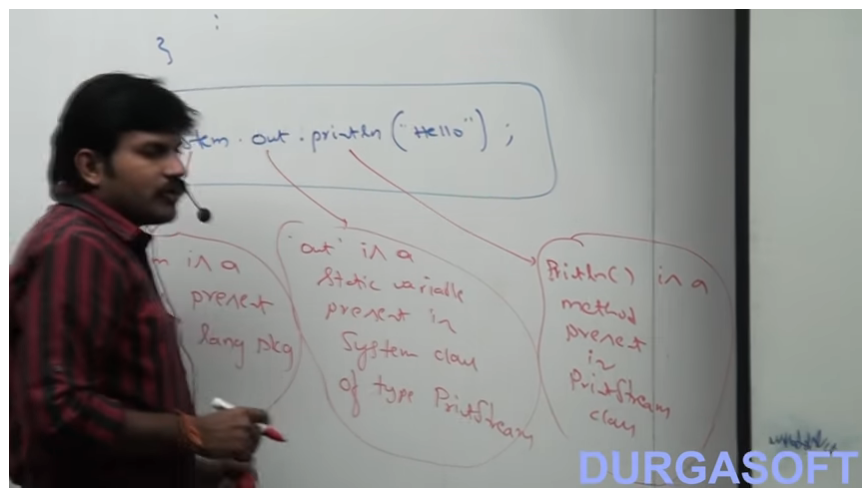 }
stem.out.println("Hello");
m is a
present
lang pkg
"out" is a
static variable
present in
System class
of type PrintStream
Println() is a
method
present
in
PrintStream
class
DURGASOFT